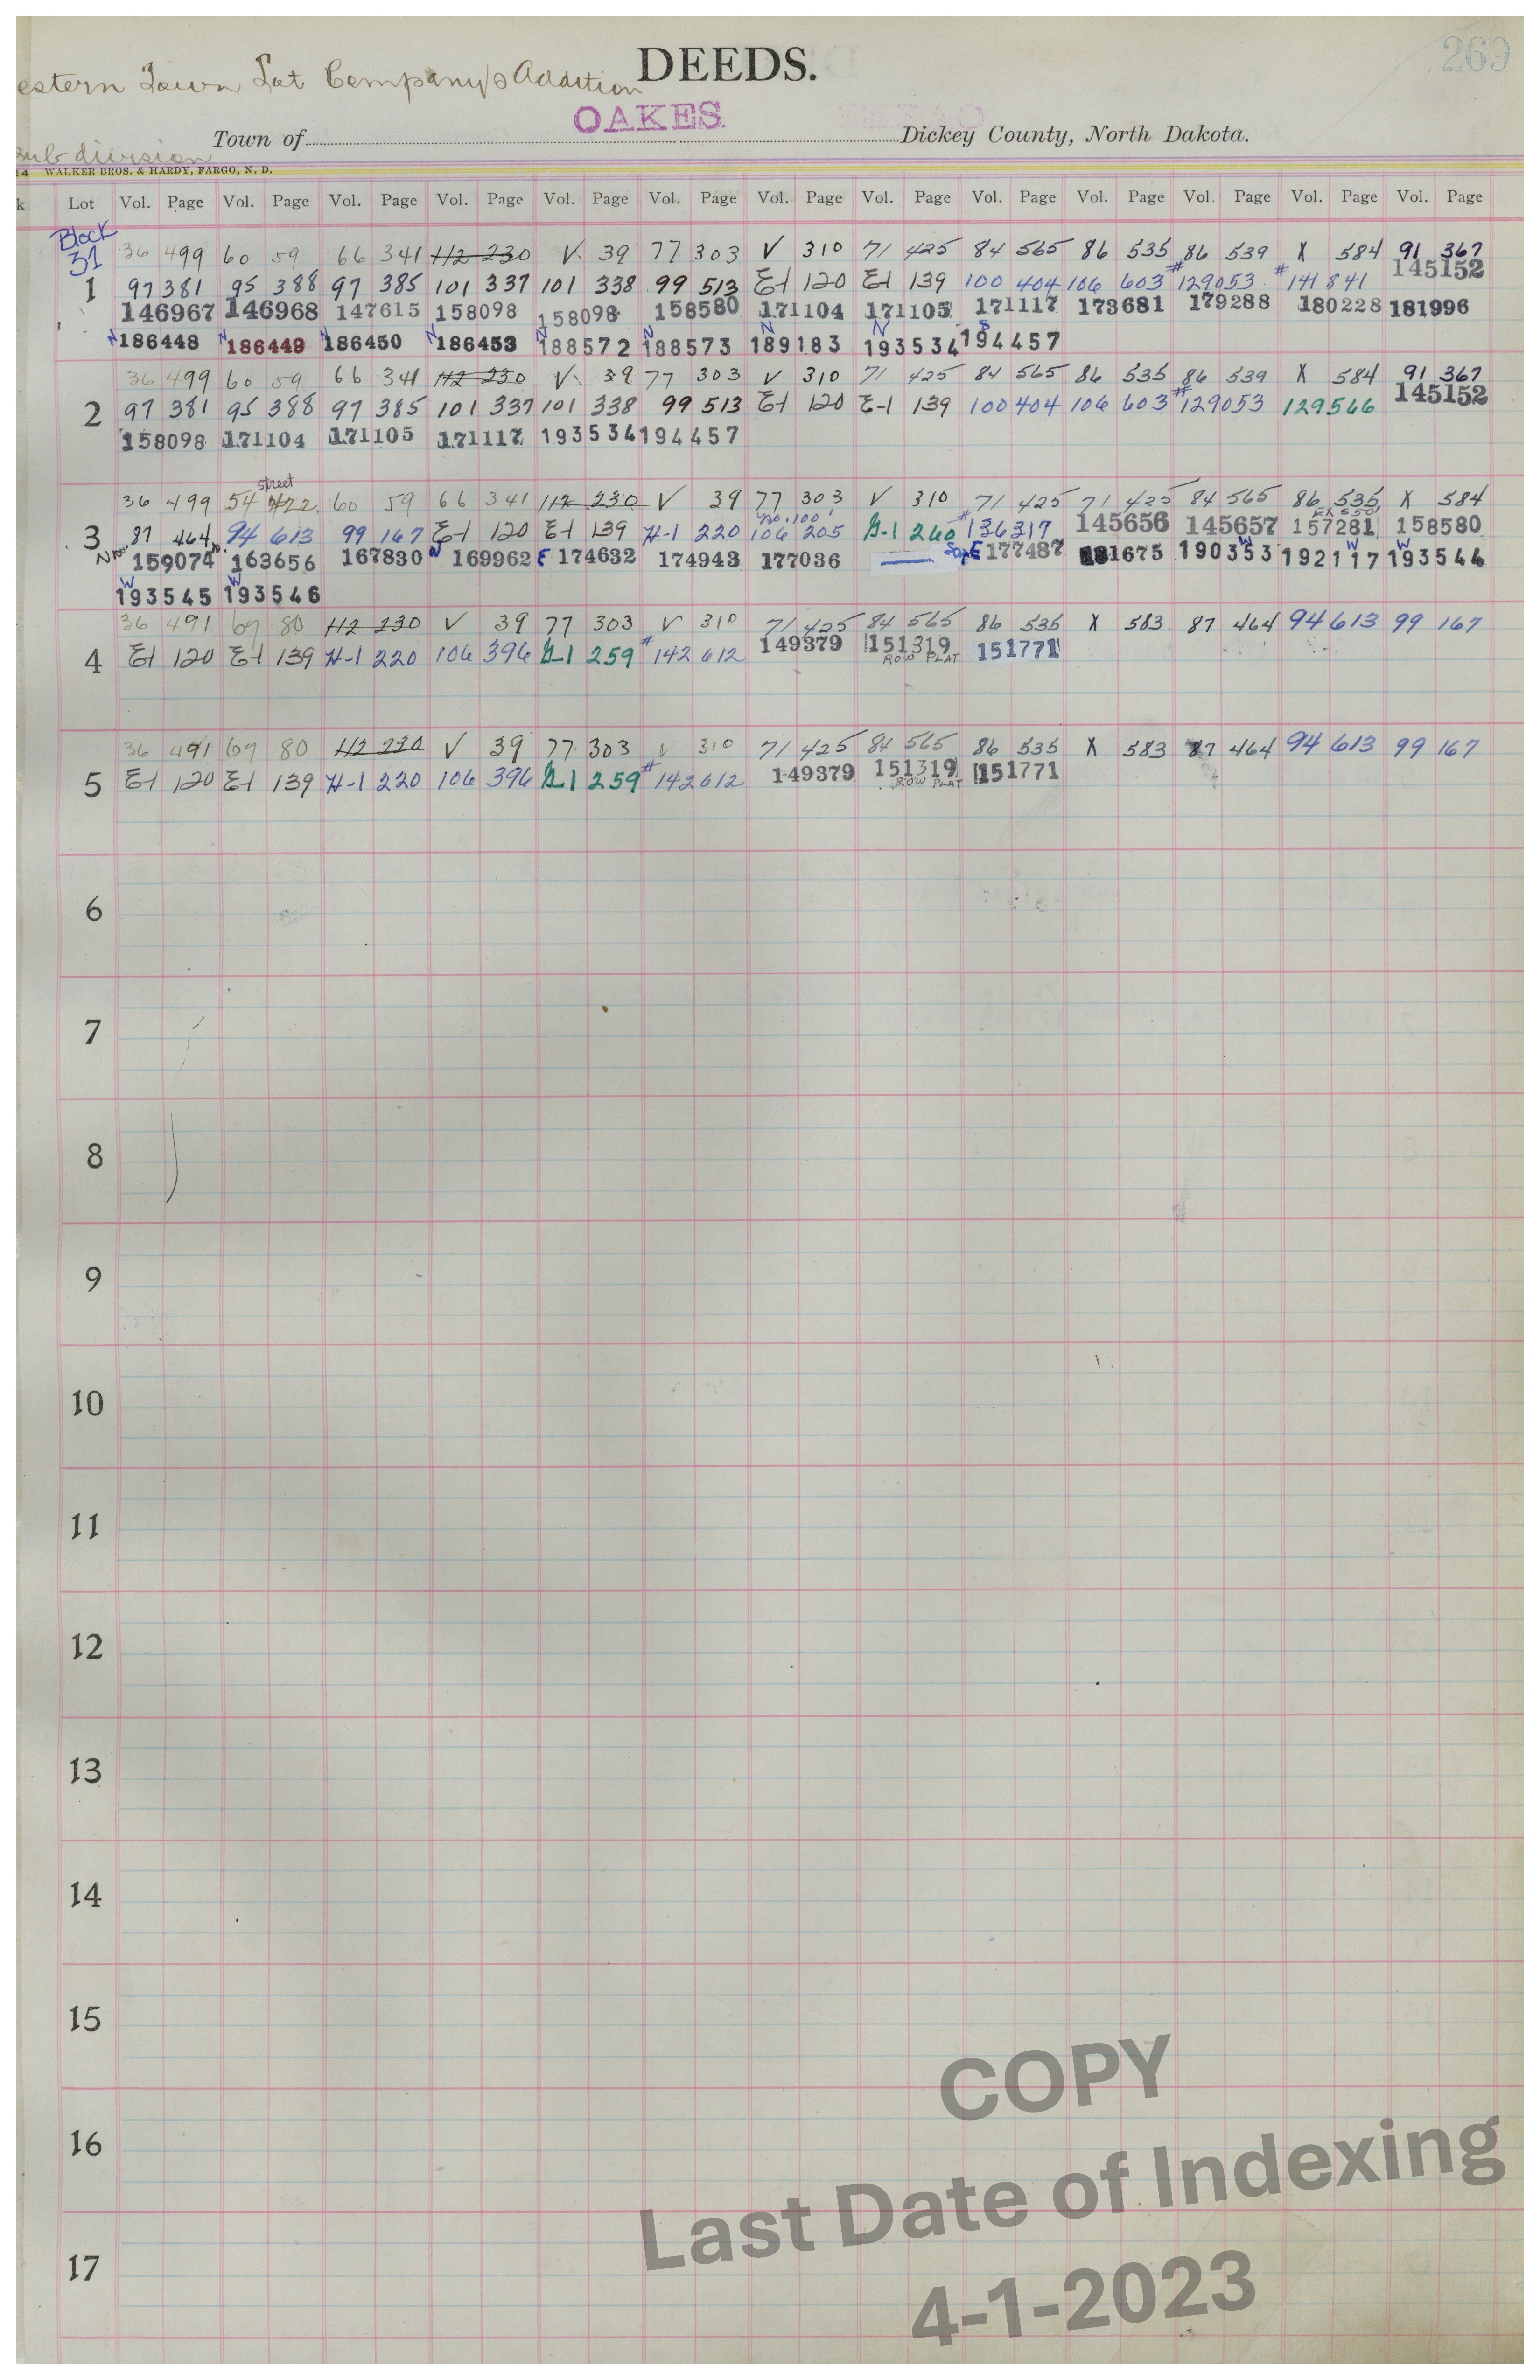 DEEDS. 269
estern Town Lot Company's Addition
OAKES.
Town of Dickey County, North Dakota.
Sub division
24 WALKER BROS. & HARDY, FARGO, N. D.
k Lot Vol. Page Vol. Page Vol. Page Vol. Page Vol. Page Vol. Page Vol. Page Vol. Page Vol. Page Vol. Page Vol. Page Vol. Page Vol. Page
Block
31
36 499 60 59 66 341 112 230 V. 39 77 303 V 310 71 425 84 565 86 535 86 539 X 584 91 367
145152
1 97 381 95 388 97 385 101 337 101 338 99 513 E-1 120 E-1 139 100 404 106 603 #129053 #141841
146967 146968 147615 158098 158098 158580 171104 171105 171117 173681 179288 180228 181996
N N N N N N N N S
186448 186449 186450 186453 188572 188573 189183 193534 194457
36 499 60 59 66 341 112 230 V. 39 77 303 V 310 71 425 84 565 86 535 86 539 X 584 91 367
2 97 381 95 388 97 385 101 337 101 338 99 513 E-1 120 E-1 139 100 404 106 603 #129053 129566 145152
158098 171104 171105 171117 193534 194457
street
36 499 54 422 60 59 66 341 112 230 V 39 77 303 V 310 71 425 71 425 84 565 86 535 X 584
3 87 464 94 613 99 167 E-1 120 E-1 139 H-1 220 106 205 G-1 260 #136317 145656 145657 157281 158580
159074 163656 167830 N 169962 E 174632 174943 177036 E 177487 181675 190353 192117 193544
W W
193545 193546
36 491 67 80 112 230 V 39 77 303 V 310 71 425 84 565 86 535 X 583 87 464 94 613 99 167
4 E-1 120 E-1 139 H-1 220 106 396 G-1 259 #142612 149379 151319 151771
ROW PLAT
36 491 67 80 112 230 V 39 77 303 V 310 71 425 84 565 86 535 X 583 87 464 94 613 99 167
5 E-1 120 E-1 139 H-1 220 106 396 G-1 259 #142612 149379 151319 151771
ROW PLAT
6
7
8
9
10
11
12
13
14
15
16
17
COPY
Last Date of Indexing
4-1-2023